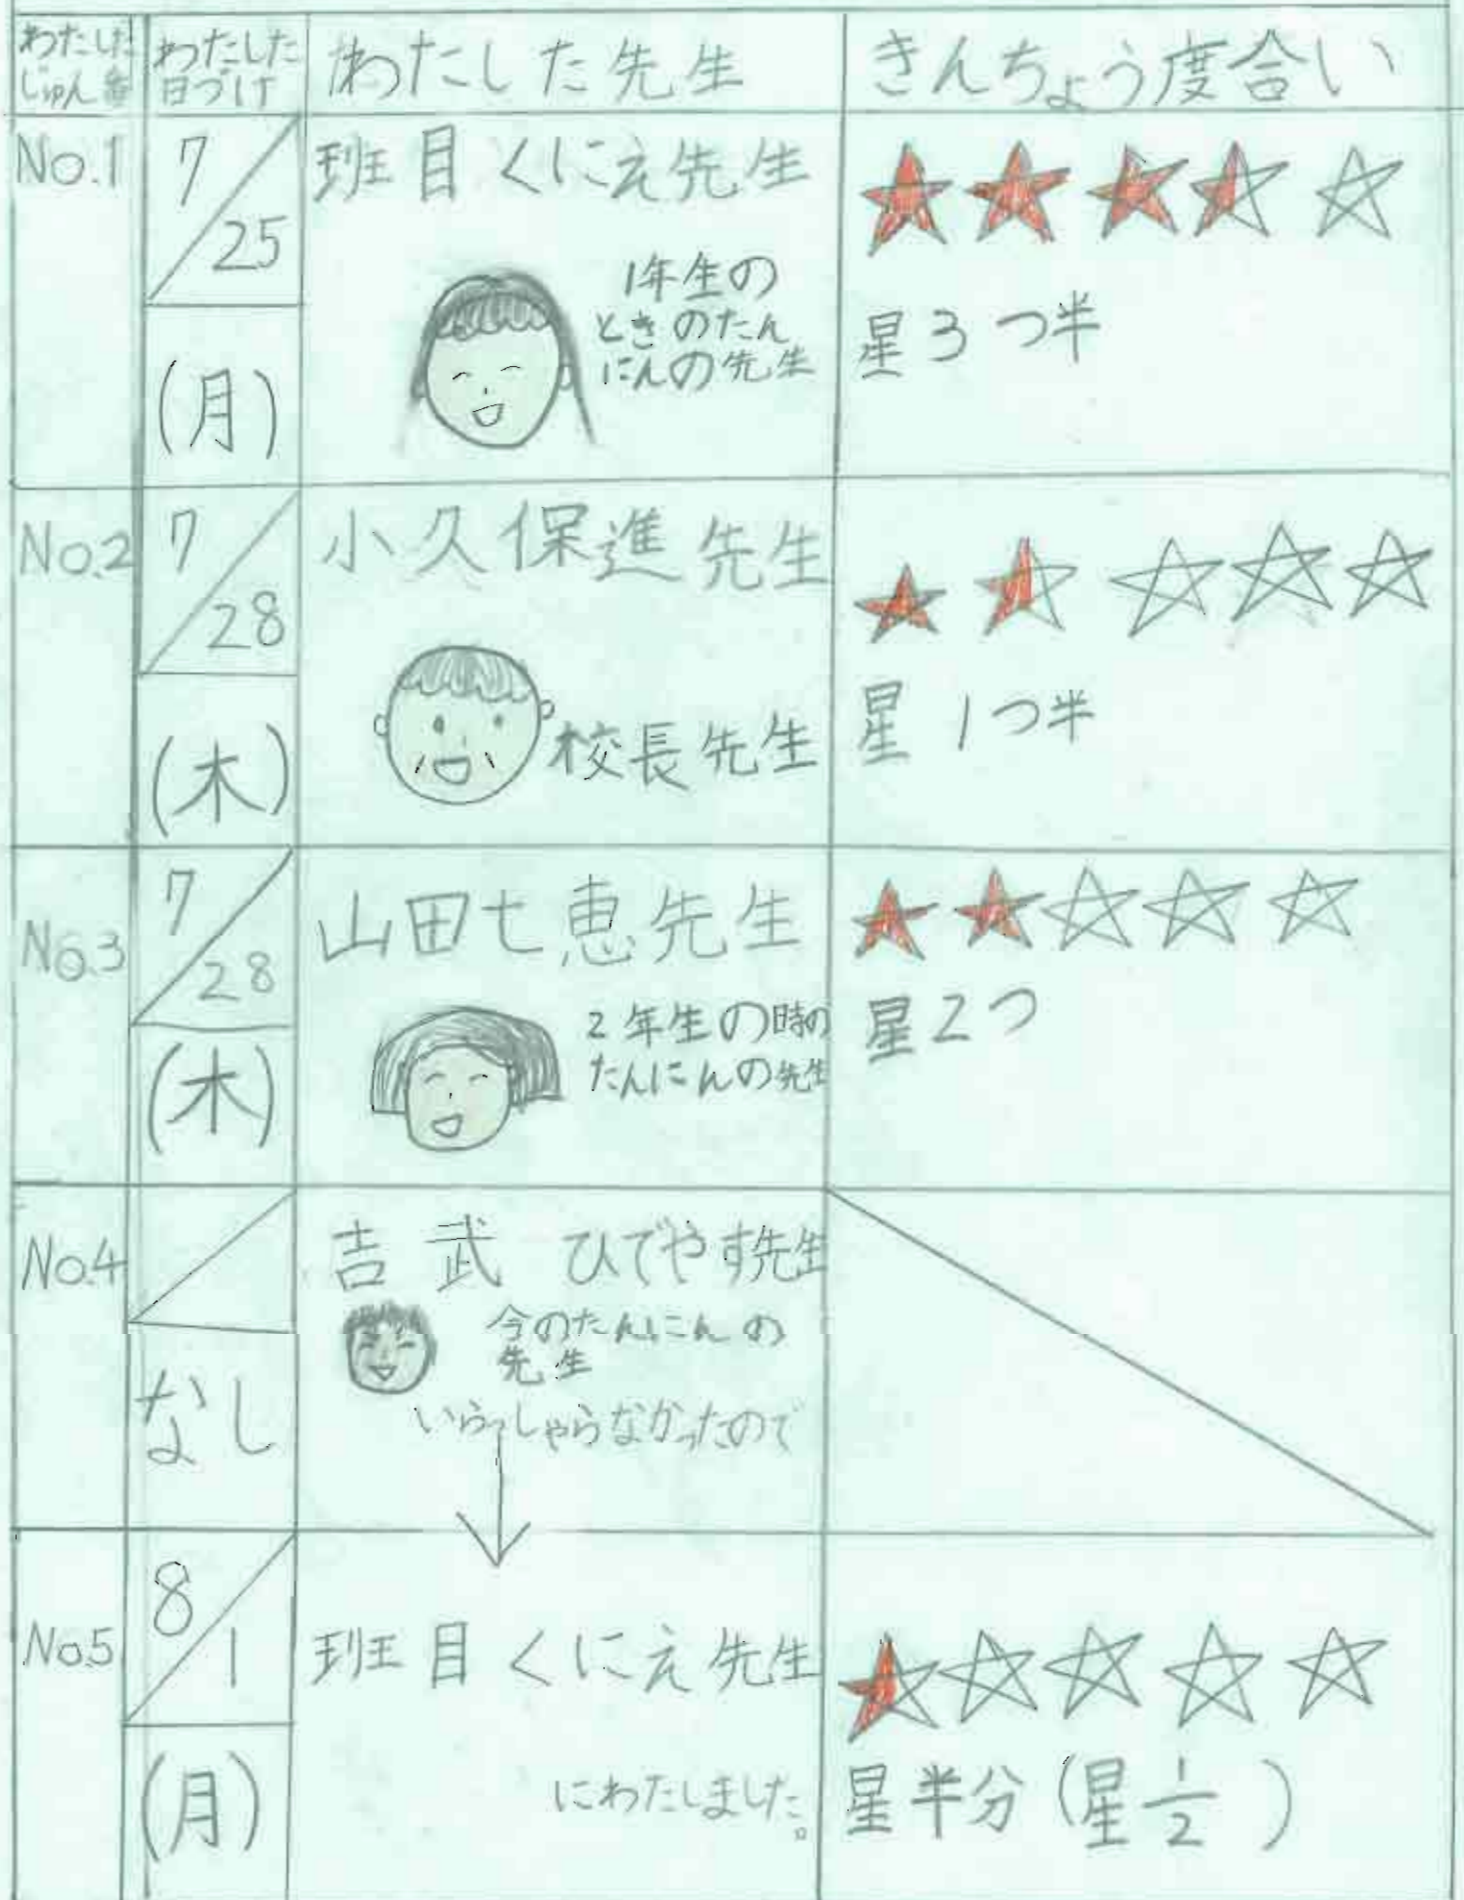 わたした
じゅん番
わたした
日づけ
わたした先生
きんちょう度合い
No.1
7/25
(月)
班目くにえ先生
1年生の
ときのたん
にんの先生
星3つ半
No.2
7/28
(木)
小久保進先生
校長先生
星1つ半
No.3
7/28
(木)
山田七恵先生
2年生の時の
たんにんの先生
星2つ
No.4
なし
吉武 ひでやす先生
今のたんにんの
先生
いらっしゃらなかったので
No.5
8/1
(月)
班目くにえ先生
にわたしました。
星半分(星1/2)